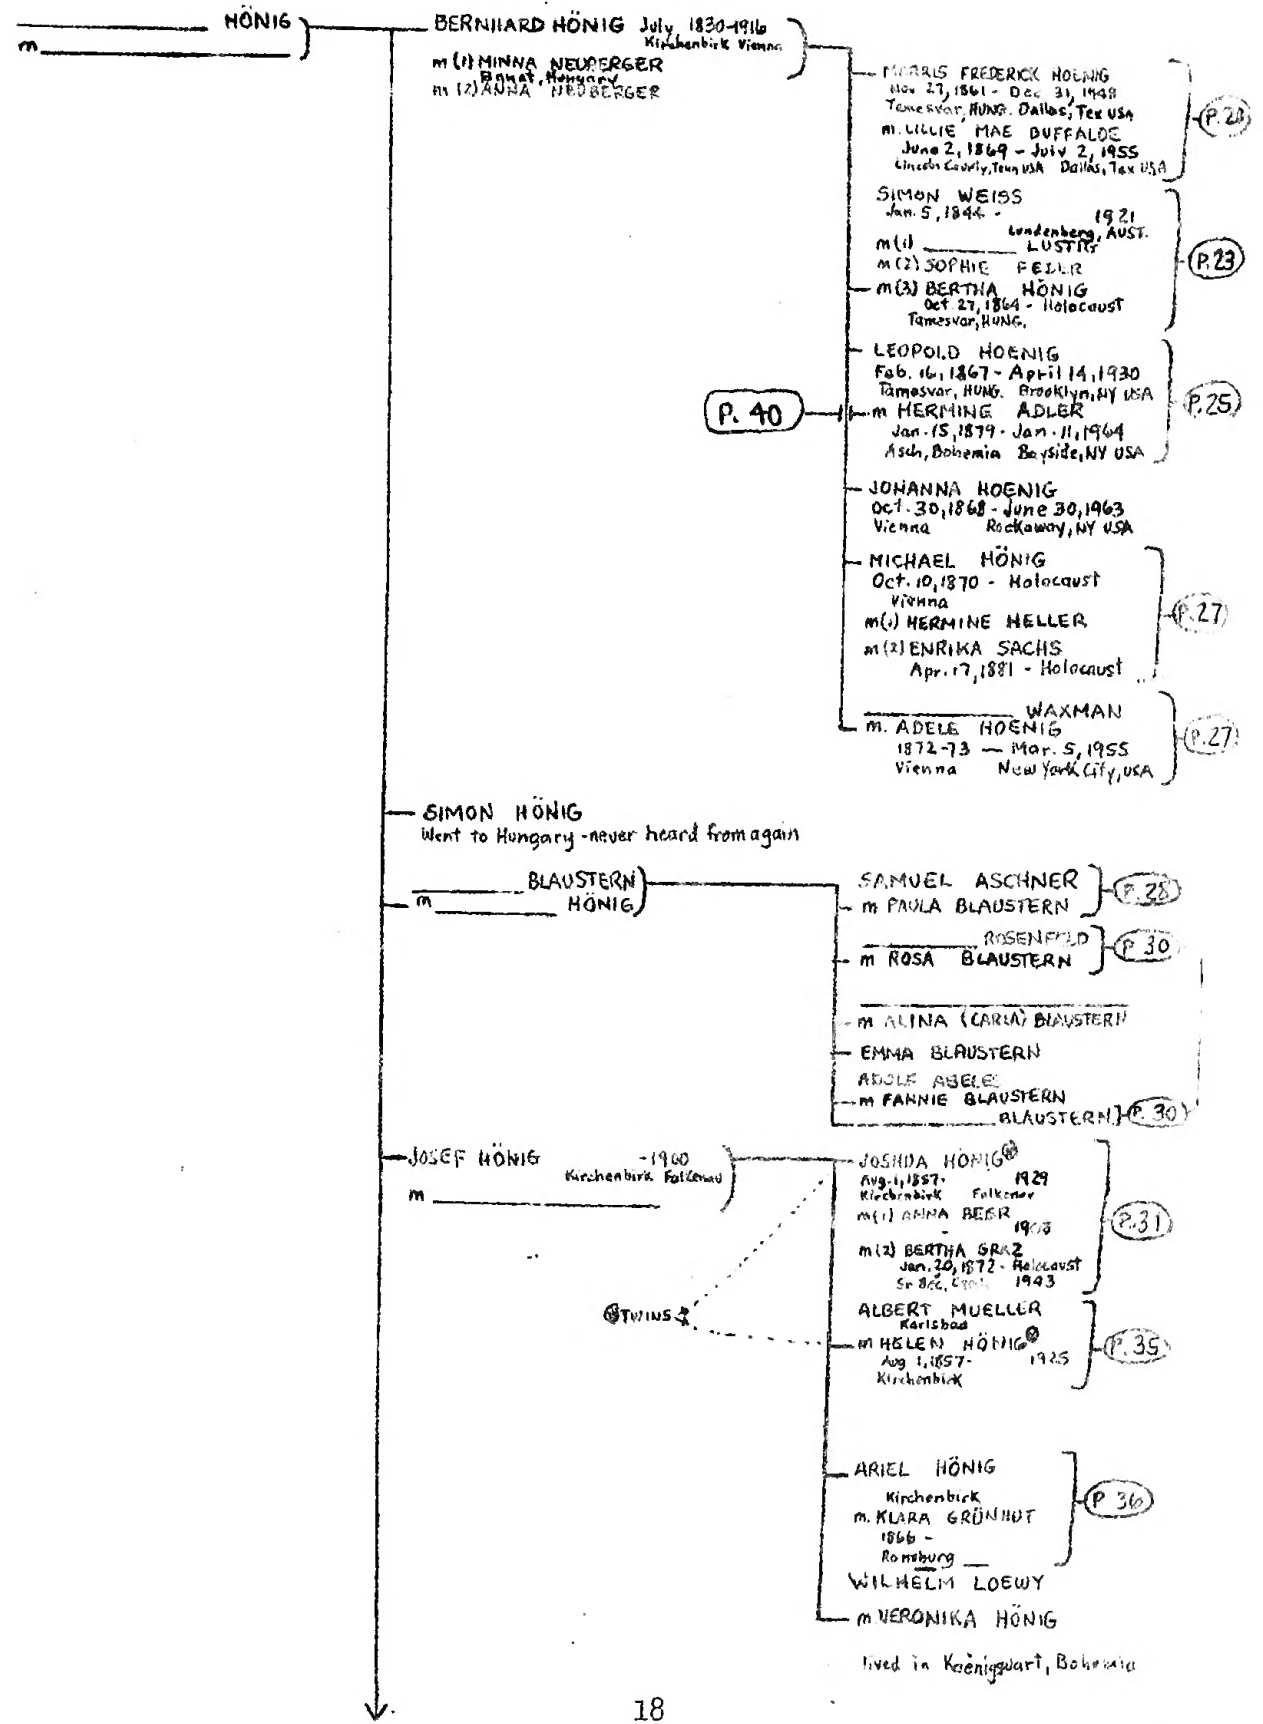 HÖNIG
m
BERNHARD HÖNIG July, 1830-1916
Kirchenbirk Vienna
m (1) MINNA NEUBERGER
Banat, Hungary
m (2) ANNA NEUBERGER
MORRIS FREDERICK HOENIG
Nov 27, 1861 - Dec 31, 1948
Temesvar, HUNG. Dallas, Tex USA
m. LILLIE MAE BUFFALOE
June 2, 1869 - July 2, 1955
Lincoln County, Tenn USA Dallas, Tex USA
SIMON WEISS
Jan. 5, 1844 - 1921
Lundenberg, AUST.
m(1) LUSTIG
m(2) SOPHIE
m(3) BERTHA HÖNIG
Oct. 27, 1864 - Holocaust
Tamesvar, HUNG.
P.23
LEOPOLD HOENIG
Feb. 16, 1867 - April 14, 1930
Tamesvar, HUNG. Brooklyn, NY USA
P. 40
m HERMINE ADLER
Jan. 15, 1879 - Jan. 11, 1964
Asch, Bohemia Bayside, NY USA
P.25
JOHANNA HOENIG
Oct. 30, 1868 - June 30, 1963
Vienna Rockaway, NY USA
MICHAEL HÖNIG
Oct. 10, 1870 - Holocaust
Vienna
m(1) HERMINE HELLER
m(2) ENRIKA SACHS
Apr. 17, 1881 - Holocaust
P.27
WAXMAN
m. ADELE HOENIG
1872-73 - Mar. 5, 1955
Vienna New York City, USA
P.27
SIMON HÖNIG
Went to Hungary - never heard from again
BLAUSTERN
m HÖNIG
SAMUEL ASCHNER
m PAULA BLAUSTERN
P.28
ROSENFELD
m ROSA BLAUSTERN
P 30
m ALINA (CARLA) BLAUSTERN
EMMA BLAUSTERN
ADOLF ABELES
m FANNIE BLAUSTERN
BLAUSTERN
P. 30
JOSEF HÖNIG -1900
Kirchenbirk Falkenau
m
JOSHUA HÖNIG
Aug. 1, 1857- 1929
Kirchenbirk Falkenau
m(1) ANNA BEER
m(2) BERTHA GRAZ
Jan. 20, 1872 - Holocaust
1943
P.31
TWINS
ALBERT MUELLER
Karlsbad
m HELEN HÖNIG
Aug 1, 1857- 1925
Kirchenbirk
P.35
ARIEL HÖNIG
Kirchenbirk
m. KLARA GRÜNHUT
1866 -
Ronsburg
P 36
WILHELM LOEWY
m. VERONIKA HÖNIG
lived in Koenigswart, Bohemia
18